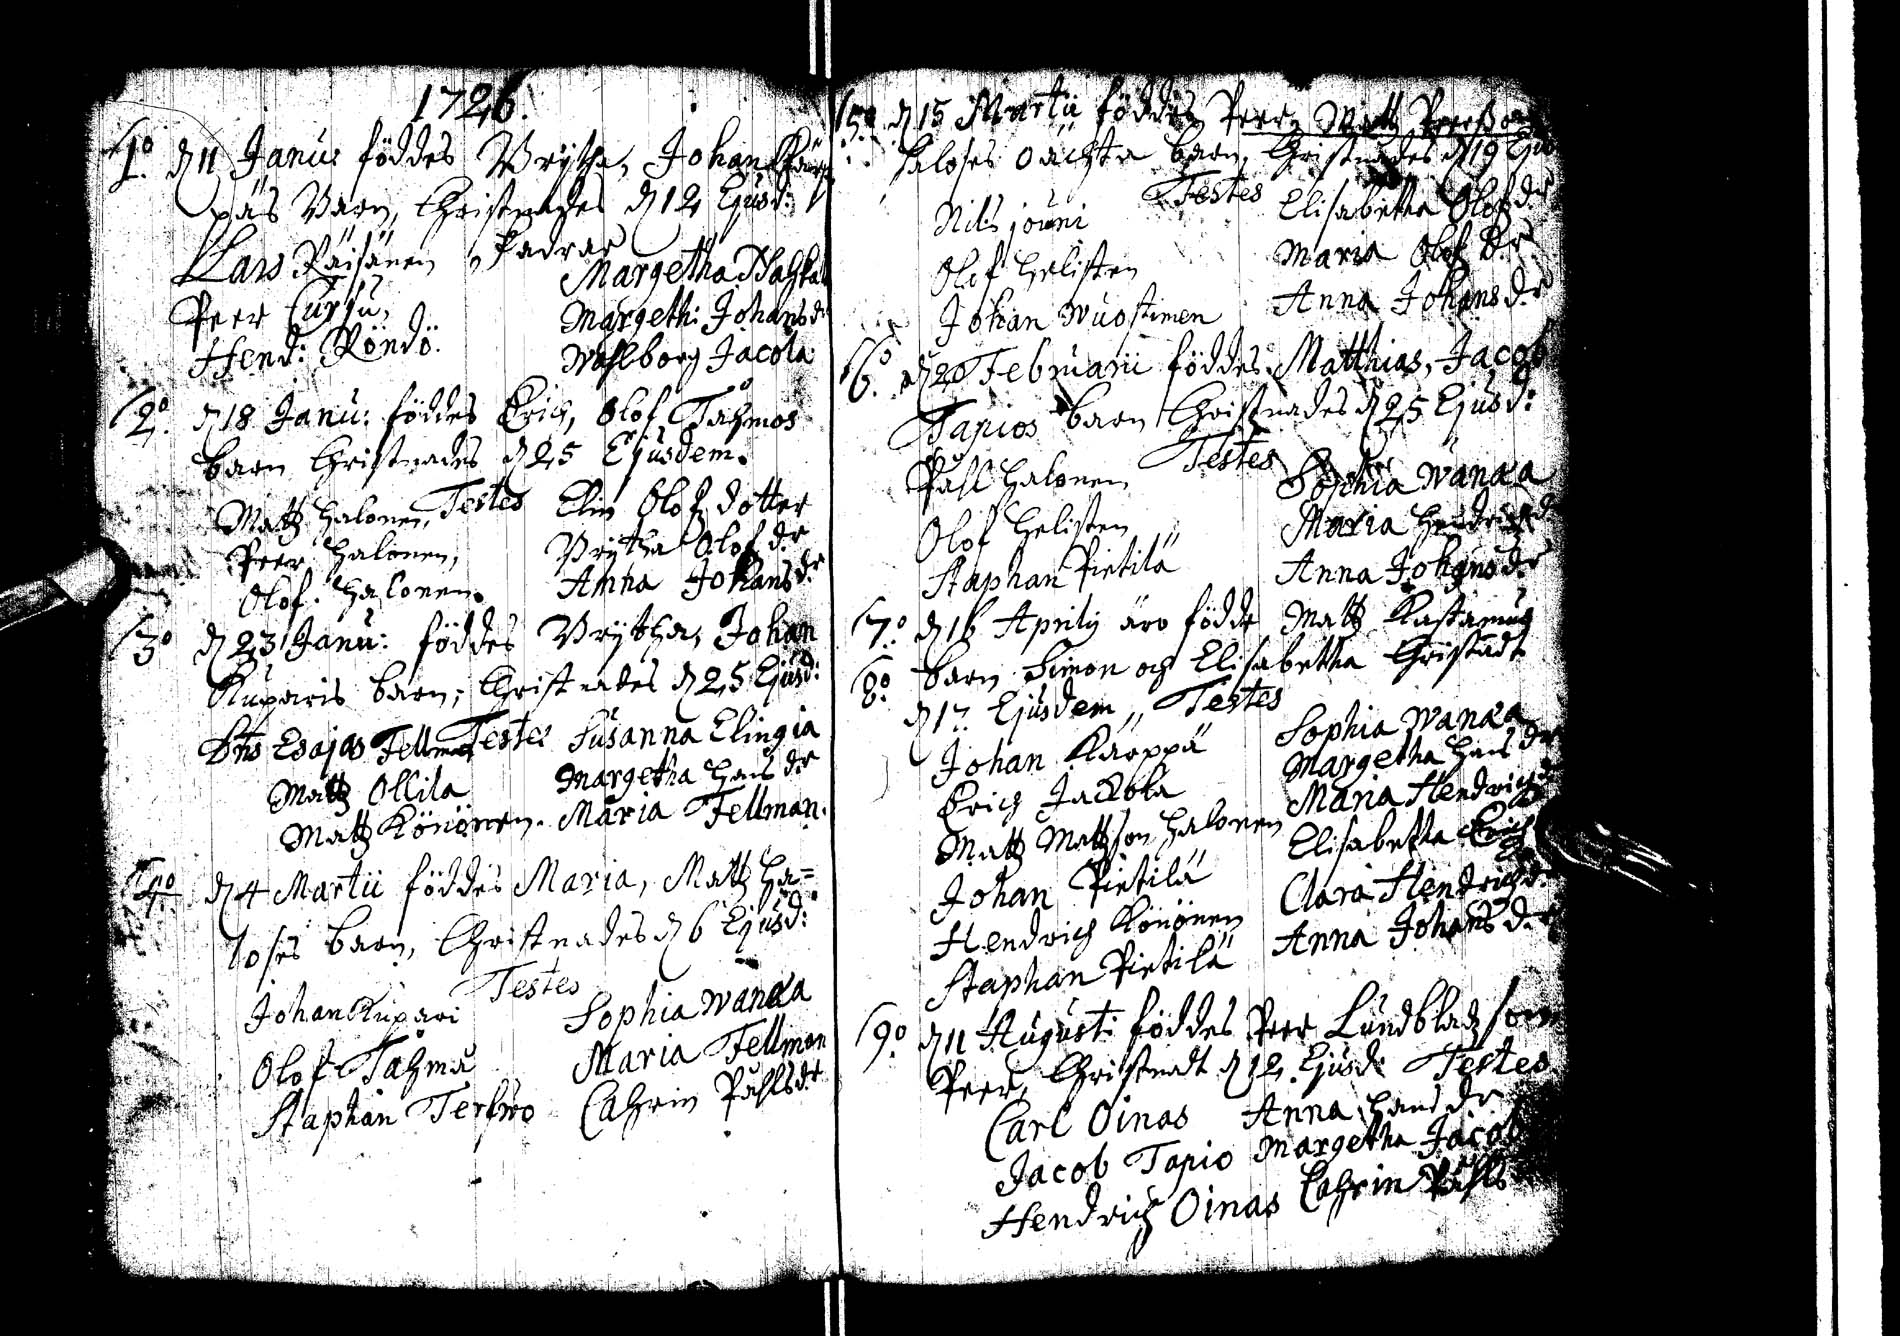 1726.
1.° d 11 Janu: föddes Brijtha, Johan Kärp
päs Barn, Christnades d 12 Ejusd:
Padrar
Lars Räisänen Margetha
Peer Cursu, Margeth: Johansdr
Hend: Röndö. Wahlborg Jacola
2.° d 18 Janu: föddes Erich, Olof Tahmos
barn Christnades d 25 Ejusdem.
Testes
Matz Halonen, Elin Olofz dotter
Peer Halonen, Brijtha Olofdr
Olof Halonen. Anna Johansdr
3.° d 23 Janu: föddes Brijtha, Johan
Kuparis barn, Christnades d 25 Ejusd:
Testes
Dns Esajas Fellman Susanna Elingia
Matz Ollila Margetha Hansdr
Matz Könönen. Maria Fellman.
4.° d 4 Martii föddes Maria, Matz Ha=
loses barn, Christnades d 6 Ejusd:
Testes
Johan Kupari Sophia Wanæa
Olof Tahma Maria Fellman
Staphan Terfwo Cahrin Påhlsdr
5.° d 15 Martii föddes Peer, Matz Peerßon
Haloses oächta barn, Christnades d 19 Ejus
Testes
Nils jouni Elisabetha Olofzdr
Olof Helisten Maria Olofzdr.
Johan Wuostimen Anna Johansdr
6.° d 20 Februarii föddes Matthias, Jacob
Tapios barn Christnades d 25 Ejusd:
Testes
Påhl Halonen Sophia Wanæa
Olof Helisten Maria Hendrichzd
Staphan Pietilä Anna Johansdr
7.° d 16 Aprilij äro födde Matz
8.° barn Simon och Elisabetha Christnadt
d 17 Ejusdem Testes
Johan Karppa Sophia Wanæa
Erich Jackola Margetha Hansdr
Matz Matzson Halonen Maria Hendrichzd
Johan Pietilä Elisabetha Erich
Hendrich Könönen Clara Hendrichzdr
Staphan Pietilä Anna Johansdr
9.° d 11 August: föddes Peer Lundbladz son
Peer, Christnadt d 12 Ejusd: Testes
Carl Oinas Anna Hansdr
Jacob Tapio Margetha Jacob
Hendrich Oinas Cahrin Påhls